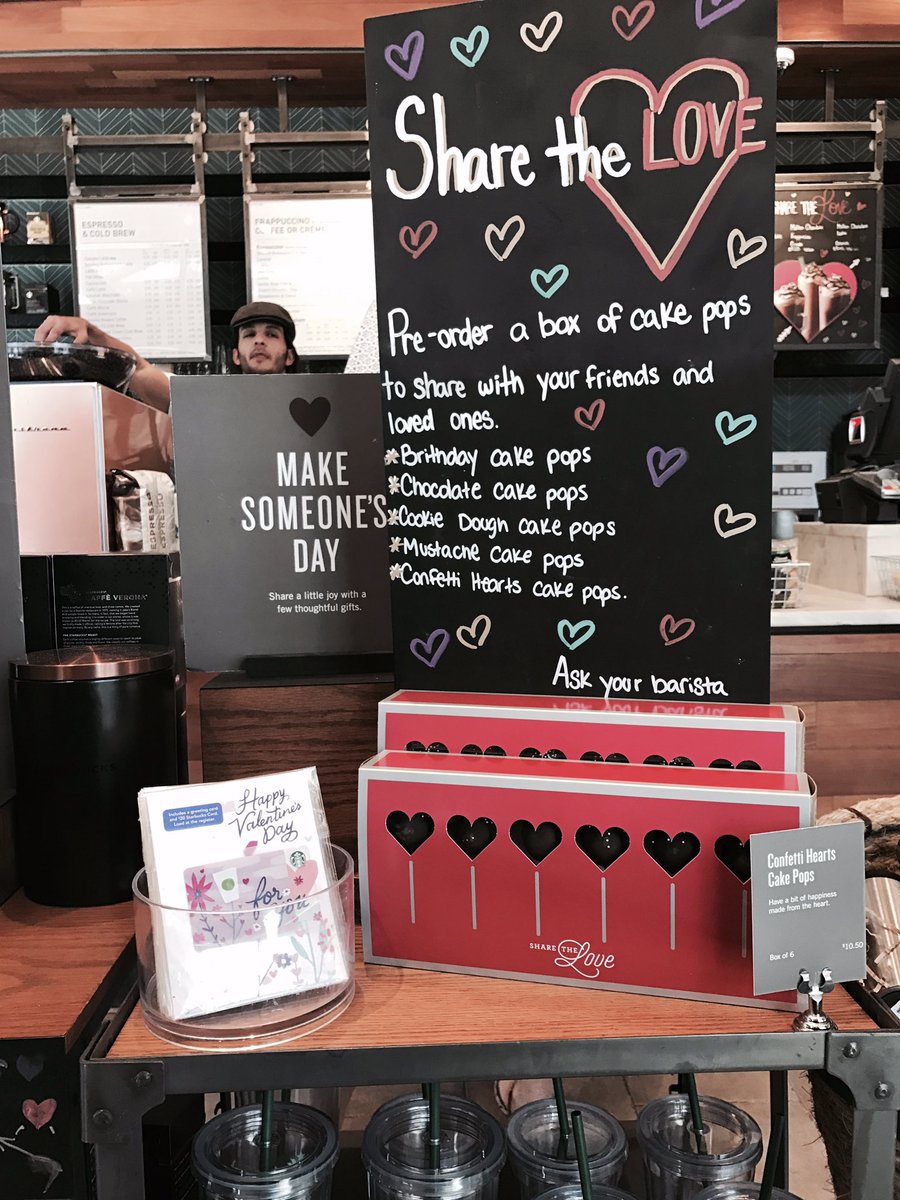 Share the LOVE
Pre-order a box of cake pops
to share with your friends and
loved ones.
*Brithday cake pops
*Chocolate cake pops
*Cookie Dough cake pops
*Mustache cake pops
*Confetti Hearts cake pops.
Ask your barista
ESPRESSO
& COLD BREW
FRAPPUCCINO
COFFEE OR CRÈME
SHARE THE Love
MAKE
SOMEONE'S
DAY
Share a little joy with a
few thoughtful gifts.
ESPRESSO
CAFFÈ VERONA
Includes a greeting card
and $20 Starbucks Card.
Load at the register.
Happy
Valentine's
Day
for
you
SHARE THE Love
Confetti Hearts
Cake Pops
Have a bit of happiness
made from the heart.
$10.50
Box of 6